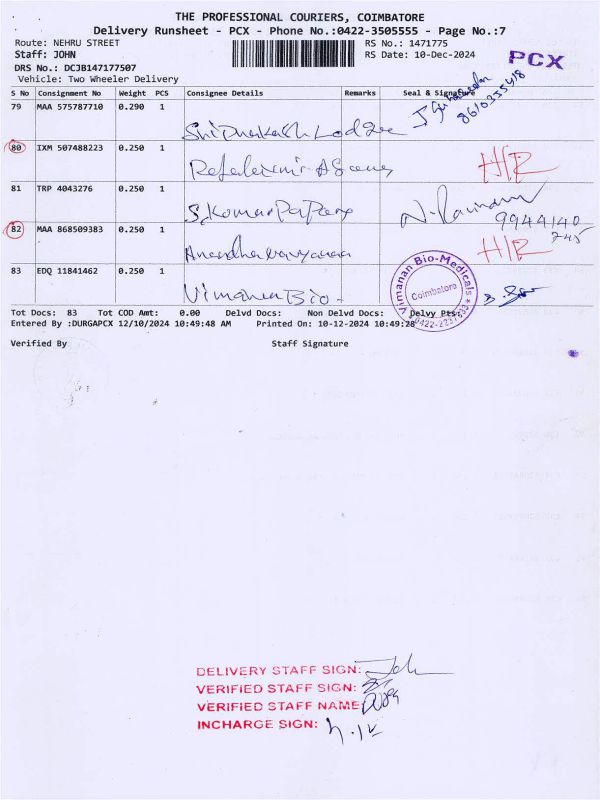 THE PROFESSIONAL COURIERS, COIMBATORE
Delivery Runsheet - PCX - Phone No.:0422-3505555 - Page No.:7
Route: NEHRU STREET
RS No.: 1471775
Staff: JOHN
RS Date: 10-Dec-2024
PCX
DRS No.: DCJB147177507
Vehicle: Two Wheeler Delivery
S No Consignment No Weight PCS Consignee Details Remarks Seal & Signature
79 MAA 575787710 0.290 1
80 IXM 507488223 0.250 1 H/R
81 TRP 4043276 0.250 1 S. Kumar 9944140
745
82 MAA 868509383 0.250 1 H/R
83 EDQ 11841462 0.250 1 Vimanan Bio-
Vimanan Bio-Medicals
Coimbatore
Tot Docs: 83 Tot COD Amt: 0.00 Delvd Docs: Non Delvd Docs: Delvy Pts:
Entered By :DURGAPCX 12/10/2024 10:49:48 AM Printed On: 10-12-2024 10:49:28
Verified By Staff Signature
DELIVERY STAFF SIGN: John
VERIFIED STAFF SIGN:
VERIFIED STAFF NAME:
INCHARGE SIGN: